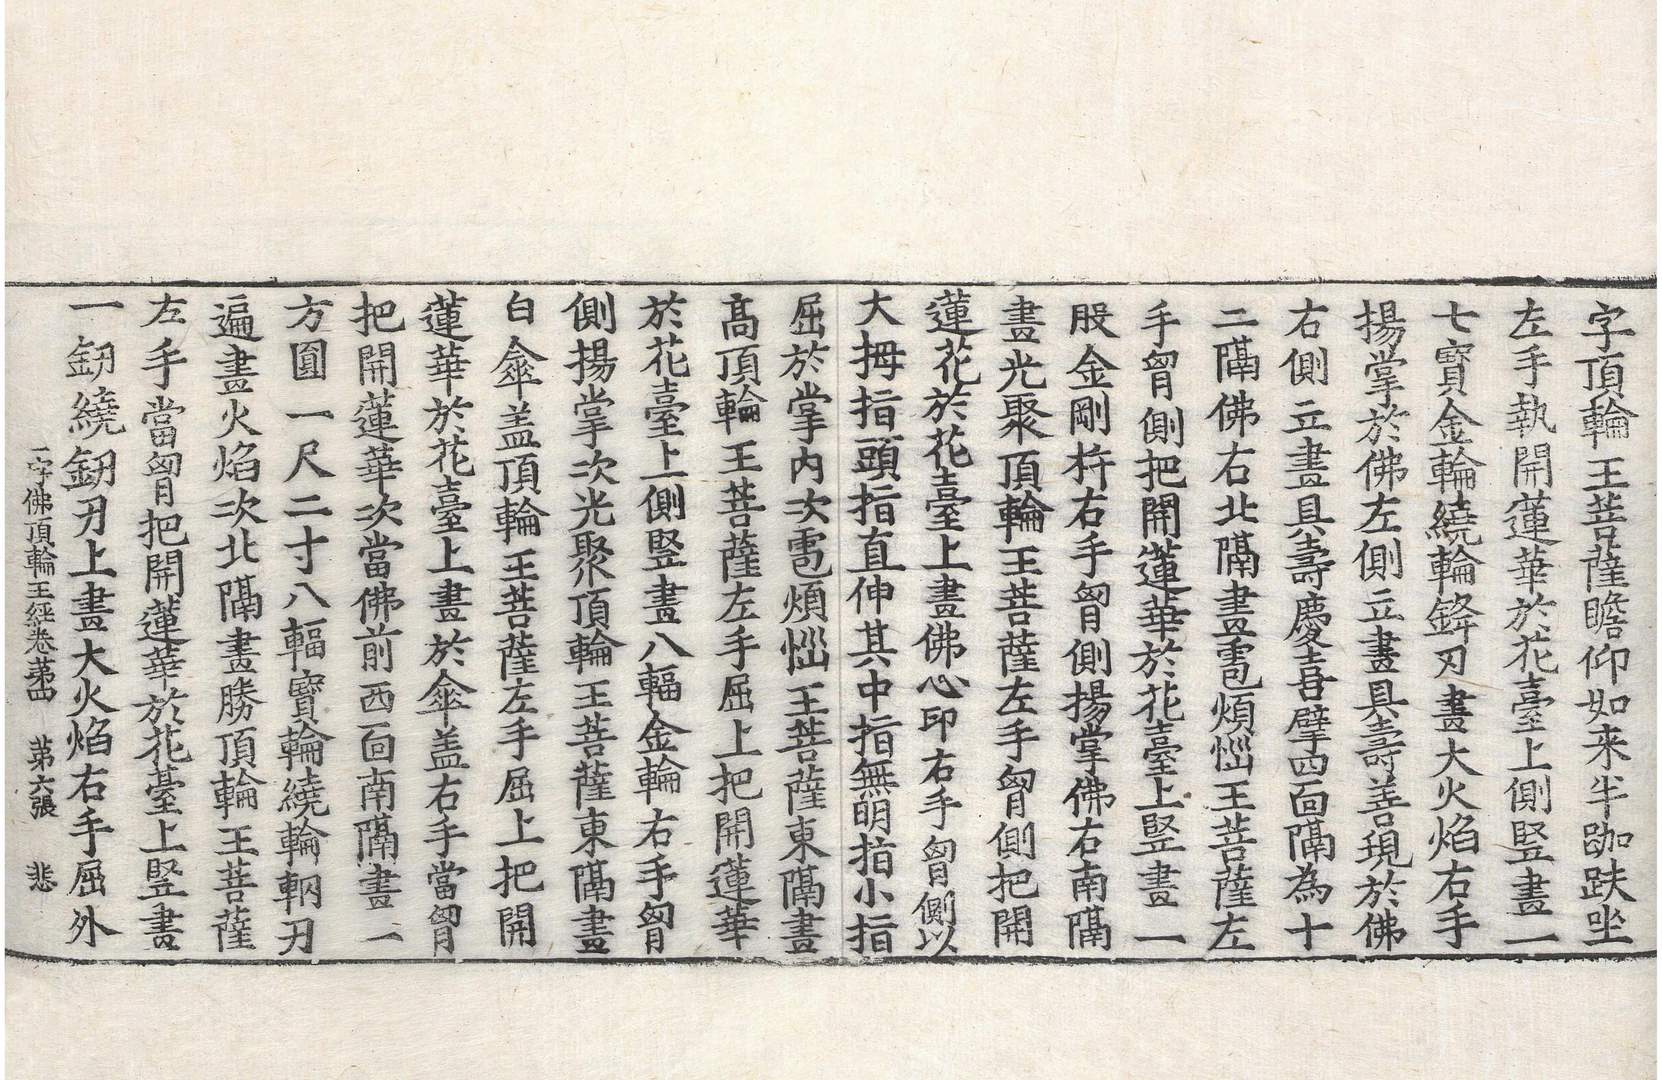 字頂輪王菩薩瞻仰如来半跏趺坐
左手執開蓮華於花臺上側竪畫一
七寶金輪繞輪鋒刃畫大火焰右手
揚掌於佛左側立畫具壽善現於佛
右側立畫具壽慶喜壁四面隔為十
二隔佛右北隔畫雹煩惱王菩薩左
手𦙄側把開蓮華於花臺上竪畫一
股金剛杵右手𦙄側揚掌佛右南隔
畫光聚頂輪王菩薩左手𦙄側把開
蓮花於花臺上畫佛心印右手𦙄側以
大拇指頭指直伸其中指無明指小指
屈於掌內次雹煩惱王菩薩東隔畫
高頂輪王菩薩左手屈上把開蓮華
於花臺上側竪畫八輻金輪右手𦙄
側揚掌次光聚頂輪王菩薩東隔畫
白傘盖頂輪王菩薩左手屈上把開
蓮華於花臺上畫於傘盖右手當𦙄
把開蓮華次當佛前西面南隔畫一
方圓一尺二寸八輻寶輪繞輪輞刃
遍畫火焰次北隔畫勝頂輪王菩薩
左手當𦙄把開蓮華於花臺上竪畫
一釰繞釰刃上畫大火焰右手屈外
一字佛頂輪王經卷第四 第六張 悲